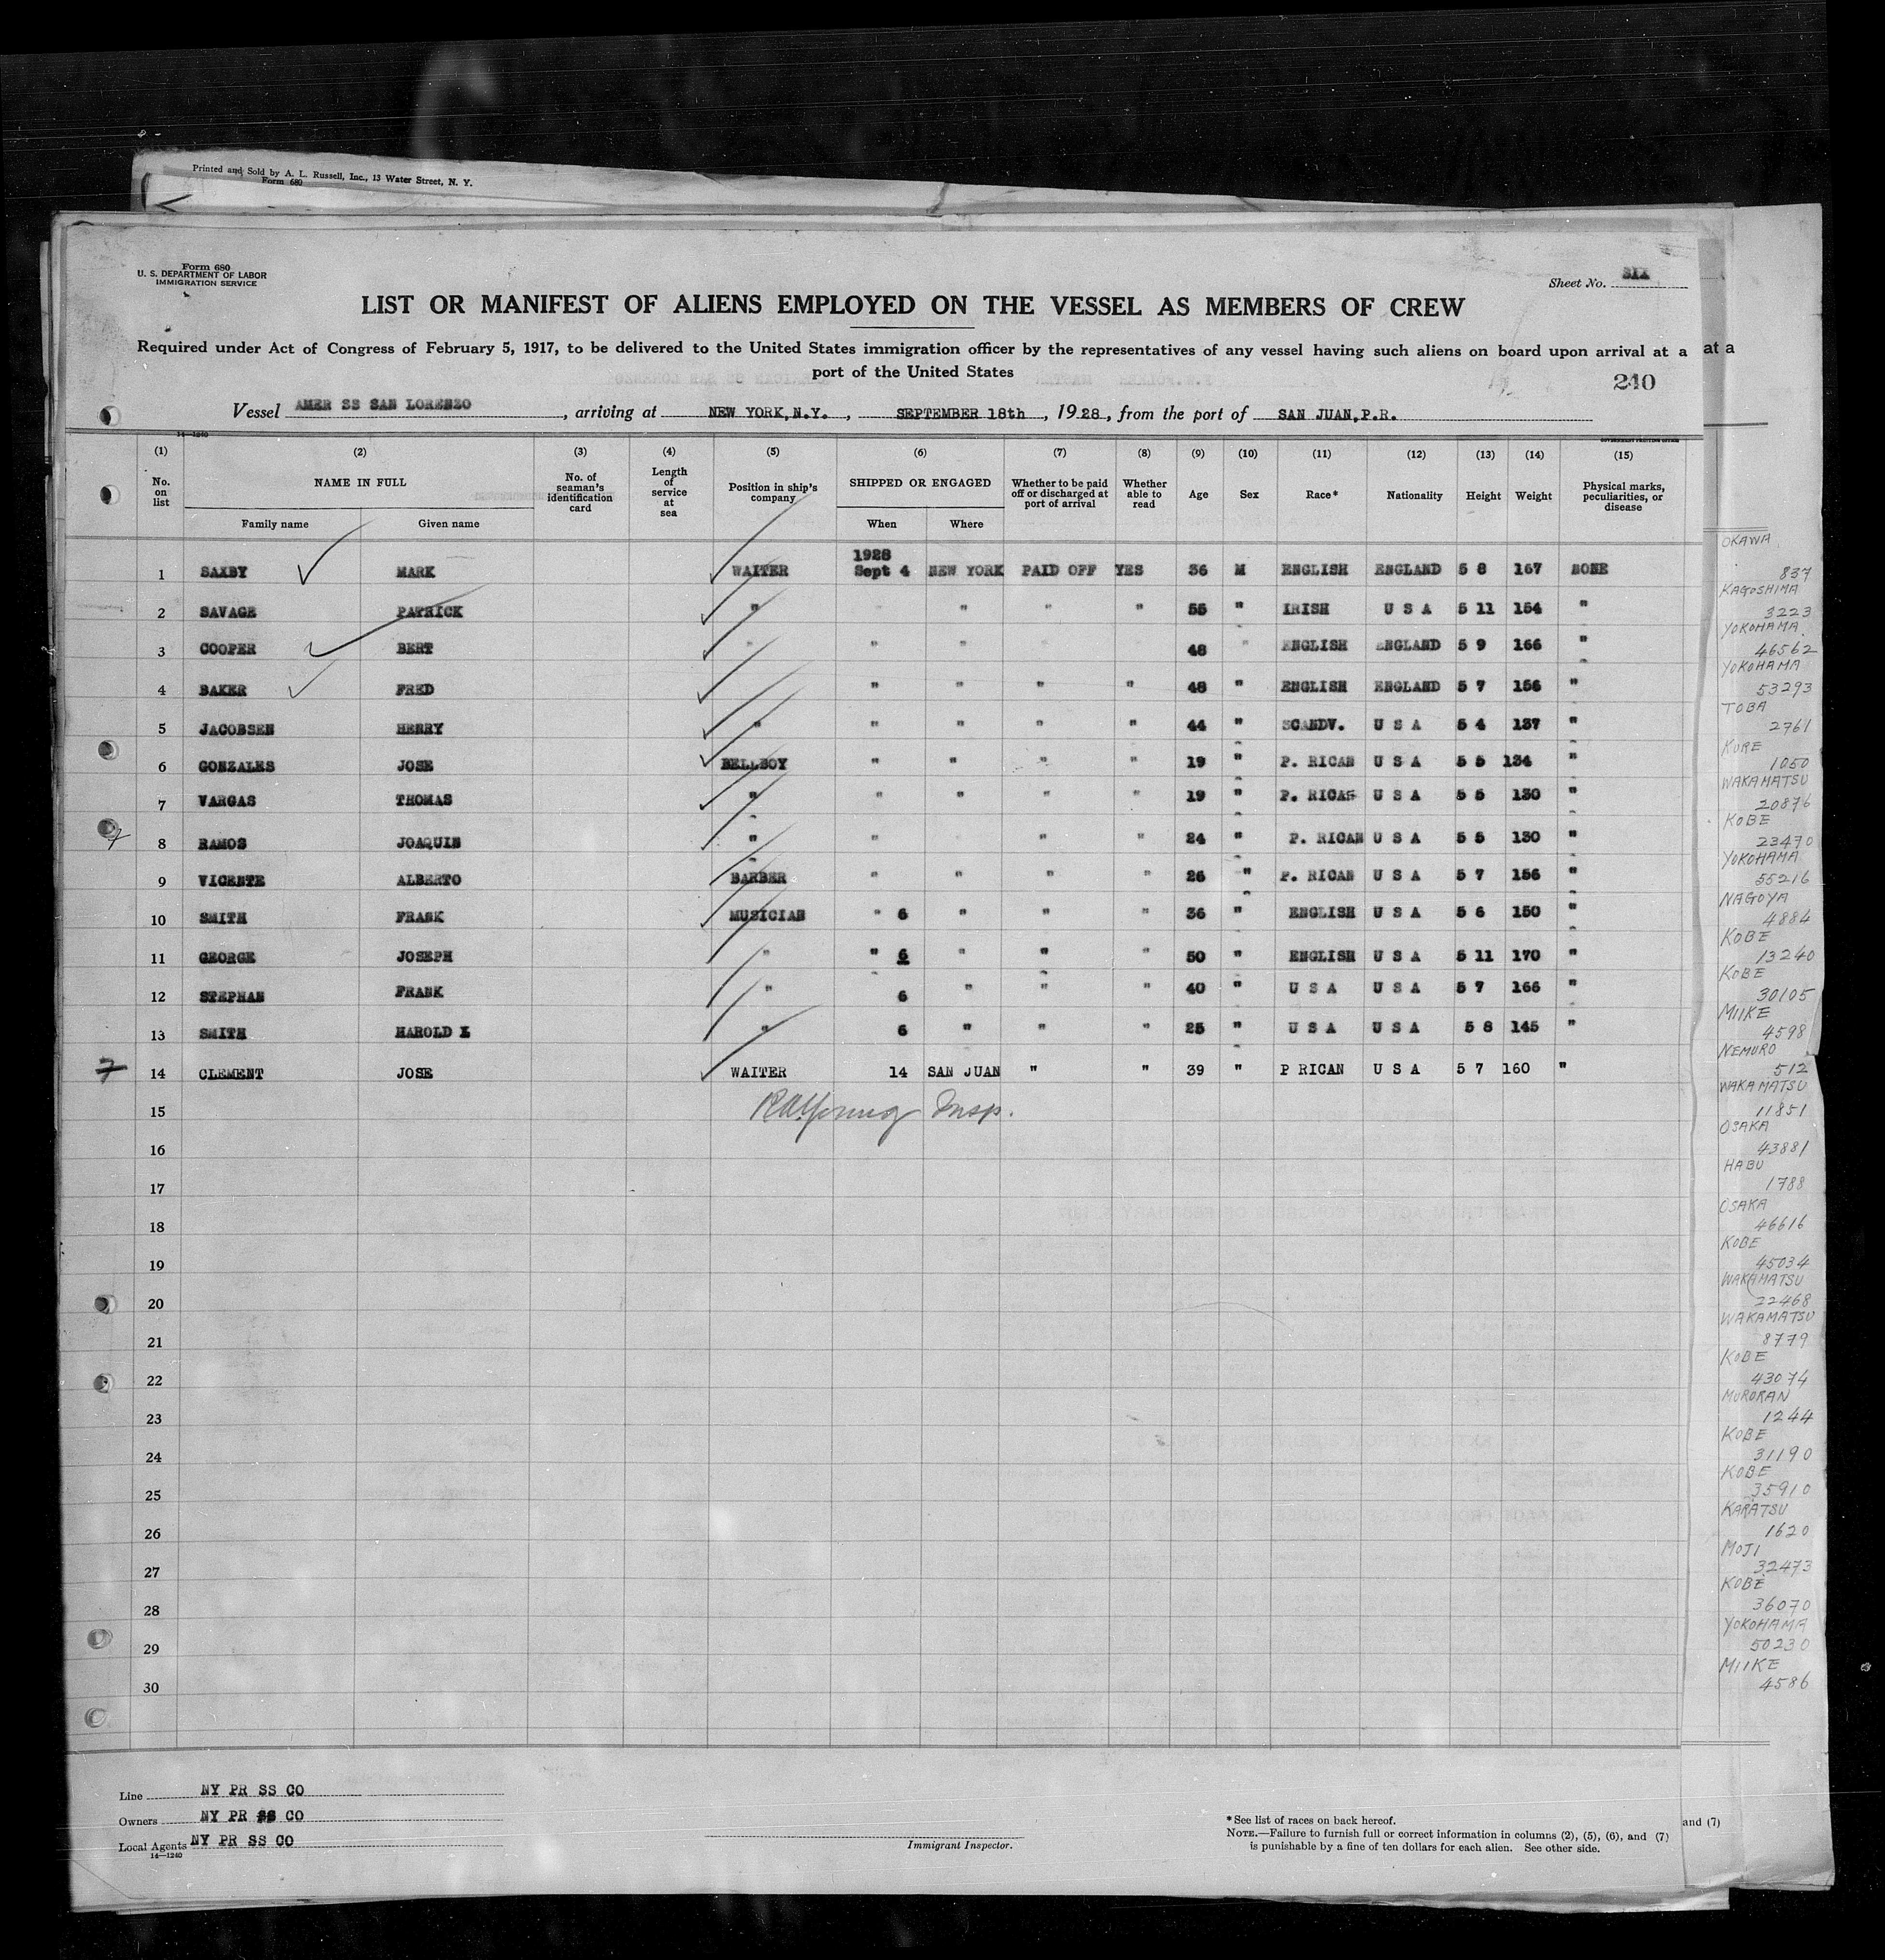 Printed and Sold by A. L. Russell, Inc., 13 Water Street, N. Y.
Form 680
Form 680
U. S. DEPARTMENT OF LABOR
IMMIGRATION SERVICE
Sheet No. SIX
LIST OR MANIFEST OF ALIENS EMPLOYED ON THE VESSEL AS MEMBERS OF CREW
Required under Act of Congress of February 5, 1917, to be delivered to the United States immigration officer by the representatives of any vessel having such aliens on board upon arrival at a
at a
port of the United States
240
Vessel AMER SS SAN LORENZO, arriving at NEW YORK, N.Y., SEPTEMBER 18th, 1928, from the port of SAN JUAN, P.R.
14—1240
GOVERNMENT PRINTING OFFICE
(1) (2) (3) (4) (5) (6) (7) (8) (9) (10) (11) (12) (13) (14) (15)
No. on list NAME IN FULL No. of seaman's identification card Length of service at sea Position in ship's company SHIPPED OR ENGAGED Whether to be paid off or discharged at port of arrival Whether able to read Age Sex Race* Nationality Height Weight Physical marks, peculiarities, or disease
Family name Given name When Where
1928
1 SAXBY MARK WAITER Sept 4 NEW YORK PAID OFF YES 36 M ENGLISH ENGLAND 5 8 167 NONE
2 SAVAGE PATRICK " " " " " 55 " IRISH U S A 5 11 154 "
3 COOPER BERT " " " 48 " ENGLISH ENGLAND 5 9 166 "
4 BAKER FRED " " " " 48 " ENGLISH ENGLAND 5 7 156 "
5 JACOBSEN HENRY " " " " " 44 " SCANDV. U S A 5 4 137 "
6 GONZALES JOSE BELLBOY " " " " 19 " P. RICAN U S A 5 5 134 "
7 VARGAS THOMAS " " " " " 19 " P. RICAN U S A 5 5 130 "
8 RAMOS JOAQUIN " " " " 24 " P. RICAN U S A 5 5 130 "
9 VICENTE ALBERTO BARBER " " " " 26 " P. RICAN U S A 5 7 156 "
10 SMITH FRANK MUSICIAN " 6 " " " 36 " ENGLISH U S A 5 6 150 "
11 GEORGE JOSEPH " " 6 " " " 50 " ENGLISH U S A 5 11 170 "
12 STEPHAN FRANK " 6 " " " 40 " U S A U S A 5 7 166 "
13 SMITH HAROLD L " 6 " " " 25 " U S A U S A 5 8 145 "
14 CLEMENT JOSE WAITER 14 SAN JUAN " " 39 " P RICAN U S A 5 7 160 "
15
RAYoung Insp.
16
17
18
19
20
21
22
23
24
25
26
27
28
29
30
OKAWA
837
KAGOSHIMA
3223
YOKOHAMA
46562
YOKOHAMA
53293
TOBA
2761
KURE
1050
WAKAMATSU
20876
KOBE
23470
YOKOHAMA
55216
NAGOYA
4884
KOBE
13240
KOBE
30105
MIIKE
4598
NEMURO
512
WAKAMATSU
11851
OSAKA
43881
HABU
1788
OSAKA
46616
KOBE
45034
WAKAMATSU
22468
WAKAMATSU
8779
KOBE
43074
MURORAN
1244
KOBE
31190
KOBE
35910
KARATSU
1620
MOJI
32473
KOBE
36070
YOKOHAMA
50230
MIIKE
4586
Line NY PR SS CO
Owners NY PR SS CO
Local Agents NY PR SS CO
14—1240
Immigrant Inspector.
*See list of races on back hereof.
NOTE.—Failure to furnish full or correct information in columns (2), (5), (6), and (7)
is punishable by a fine of ten dollars for each alien. See other side.
and (7)